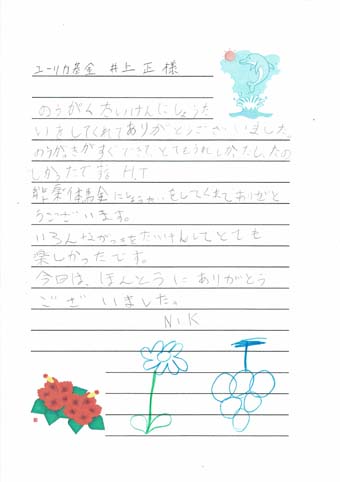 ユーリカ基金 井上正様
のうがくたいけんにしょうた
いをしてくれてありがとうございました。
がすごくて とてもうれしかったし、たの
しかったです H.T
にしょうたいをしてくれてありがと
うございます。
いろんながっきをたいけんしてとても
楽しかったです。
今日は、ほんとうにありがとう
ございました。
N.K